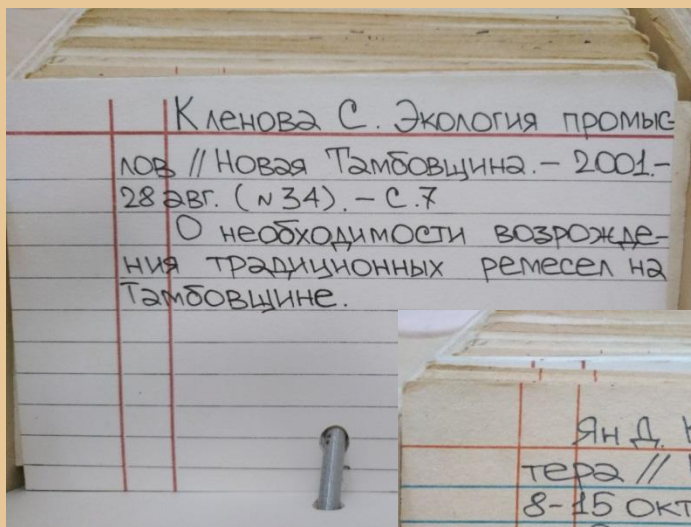 Кленова С. Экология промыс-
лов // Новая Тамбовщина. – 2001. –
28 авг. (N34). – С.7
О необходимости возрожде-
ния традиционных ремесел на
Тамбовщине.
Ян Д.
тера //
8-15 окт